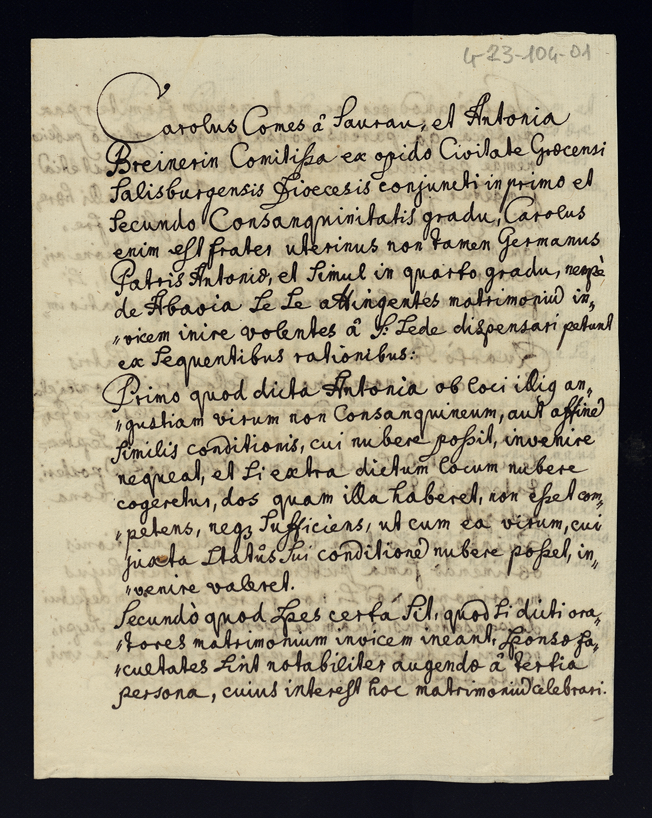 4-23-104-01
Carolus Comes â Saurau, et Antonia
Breinerin Comitißa ex opido Civitate Græcensi
Salisburgensis Diœcesis conjuncti in primo et
Secundo Consanquinitatis gradu, Carolus
enim est frater uterinus non tamen Germanus
Patris Antoniæ, et Simul in quarto gradu, nempè
de Abavia Se Se attingentes matrimoniu in„
„vicem inire volentes â S: Sede dispensari petunt
ex Sequentibus rationibus:
Primo quod dicta Antonia ob loci illig an„
„gustiam virum non Consanquineum, aut affine
Similis conditionis, cui nubere poßit, invenire
nequeat, et Si extra dictum locum nubere
cogeretur, dos quam illa haberet, non eßet com„
„petens, neqz Sufficiens, ut cum ea virum, cui
juxta Statûs Sui conditione nubere poßet, in„
„venire valeret.
Secundò quod Spes certa Sit, quod Si dicti ora„
„tores matrimonium invicem ineant, Sponsæ fa„
„cultates Sint notabiliter augendæ â tertia
persona, cuius interest hoc matrimoniu celebrari.